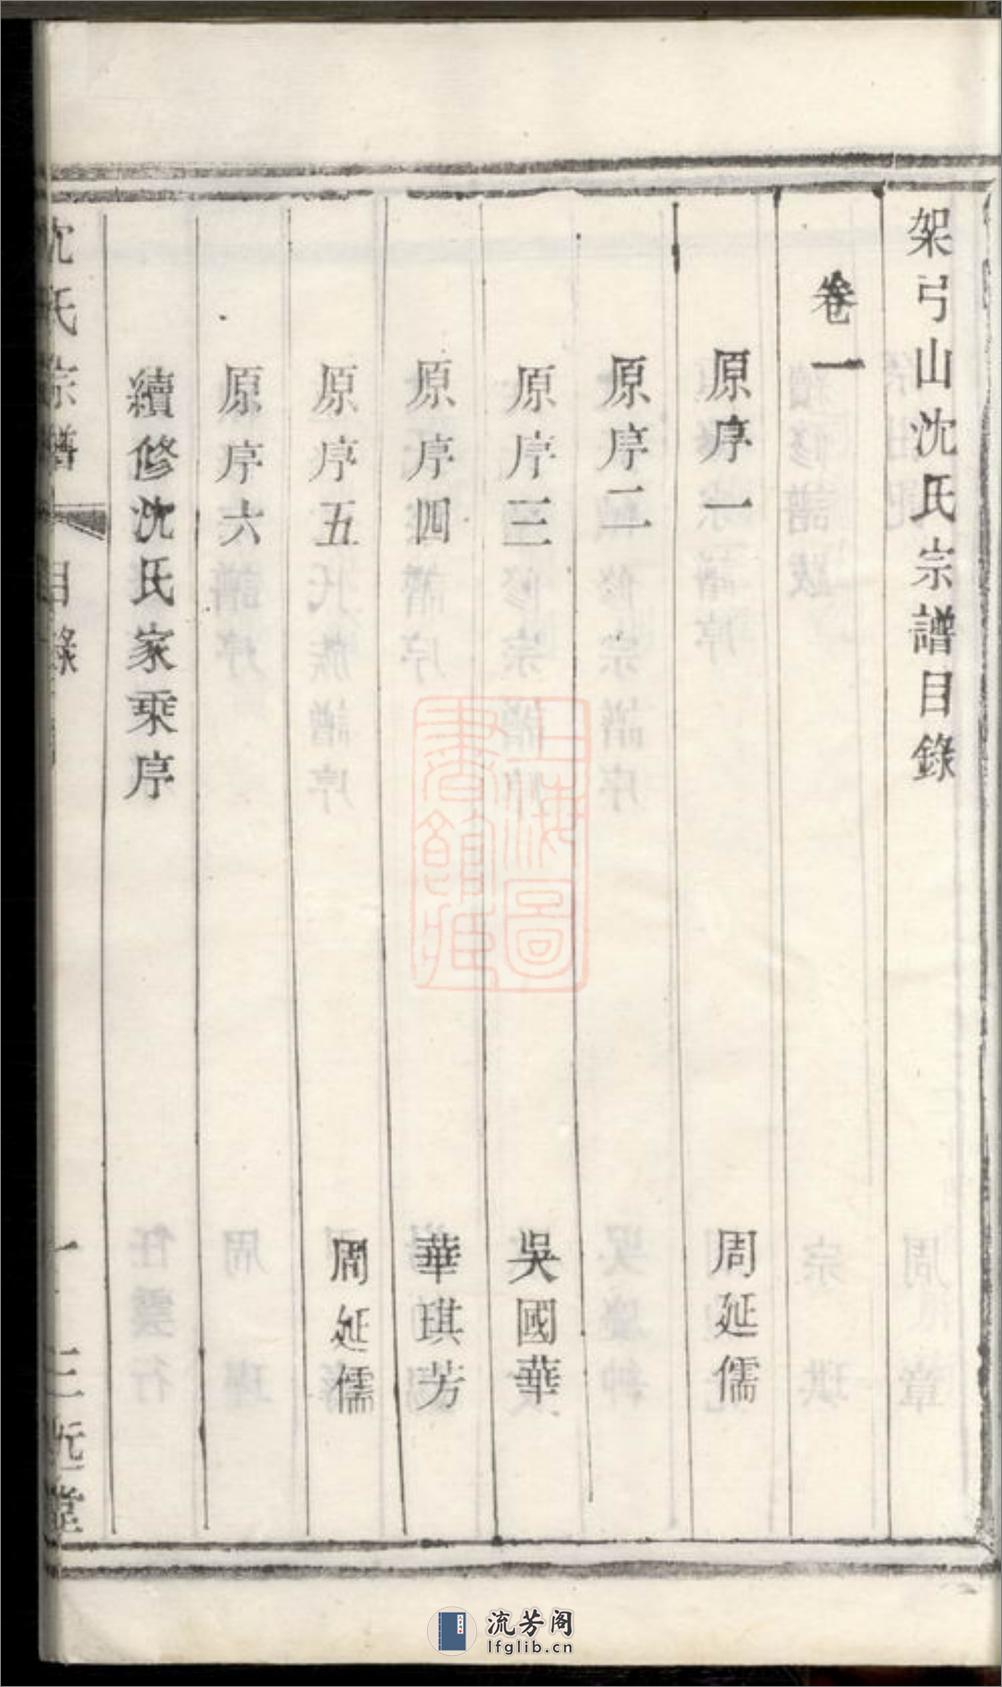 架弓山沈氏宗譜目錄
卷一
原序一 周延儒
原序二
原序三 吳國華
原序四 華琪芳
原序五 周延儒
原序六
續修沈氏家乘序
沈氏宗譜 目錄 一 三近堂
上海圖
書館藏
流芳阁
lfglib.cn